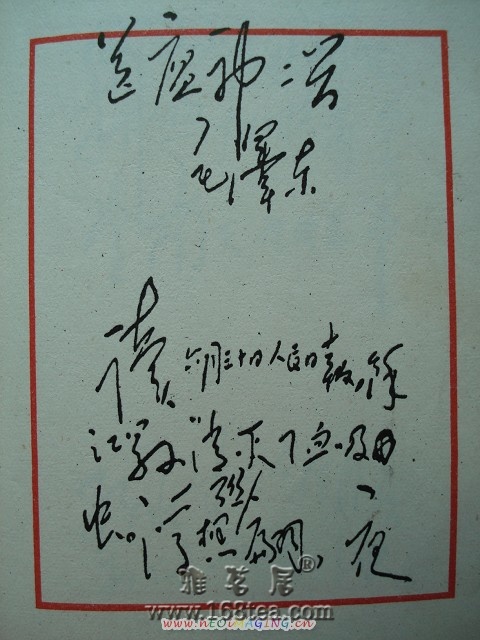 送瘟神二首
毛泽东
读六月三十日人民日报,余
江县消灭了血吸虫
虫,浮想联翩,夜
雅茗居®
www.168tea.com
www.NEOIMAGING.cn